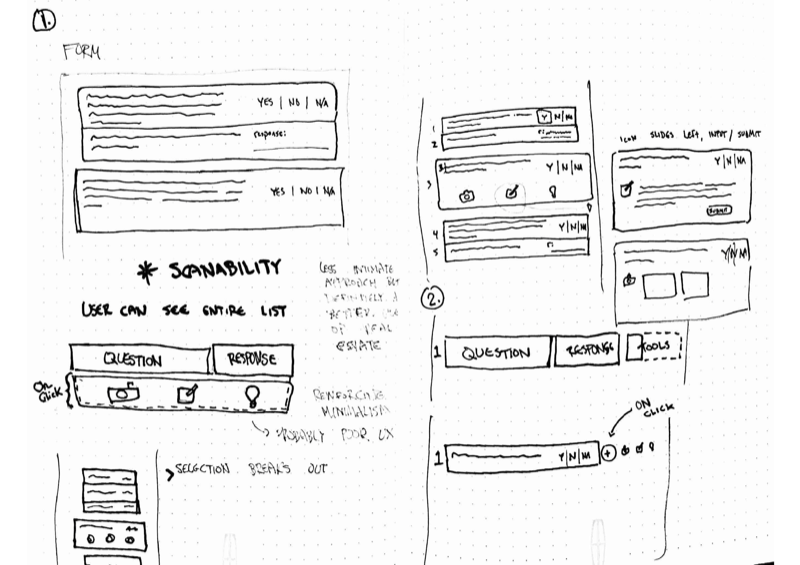 1.
FORM
YES | NO | N/A
response:
YES | NO | N/A
* SCANABILITY
USER CAN SEE ENTIRE LIST
LESS INTIMATE
APPROACH BUT
DEFINITIVELY A
BETTER USE
OF REAL
ESTATE
QUESTION
RESPONSE
ON
CLICK
REINFORCING
MINIMALISM
PROBABLY POOR UX
SELECTION BREAKS OUT
1
Y|N|NA
2
3
Y|N|NA
4
Y|N|NA
5
ICON SLIDES LEFT, INPUT / SUBMIT
Y|N|NA
SUBMIT
Y|N|NA
2.
1
QUESTION
RESPONSE
TOOLS
ON
CLICK
1
Y|N|NA
+